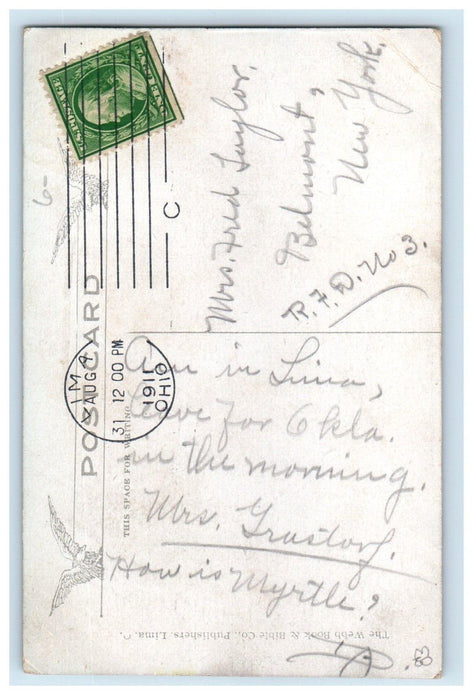 POST CARD
THIS SPACE FOR WRITING
LIMA
AUG
31 12 00 PM
1911
OHIO
C
6-
Mrs. Fred Taylor,
Belmont,
New York.
R.F.D. No 3.
Am in Lima,
leave for Okla.
in the morning.
Mrs. Grastorf.
How is Myrtle?
The Webb Book & Bible Co., Publishers, Lima, O.